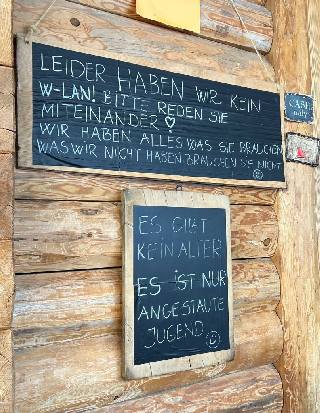 LEIDER HABEN WIR KEIN
W-LAN! BITTE REDEN SIE
MITEINANDER ♡
WIR HABEN ALLES WAS SIE BRAUCHEN
WAS WIR NICHT HABEN, BRAUCHEN SIE NICHT ☺
CASH
only
ES GIBT
KEIN ALTER
ES IST NUR
ANGESTAUTE
JUGEND ☺